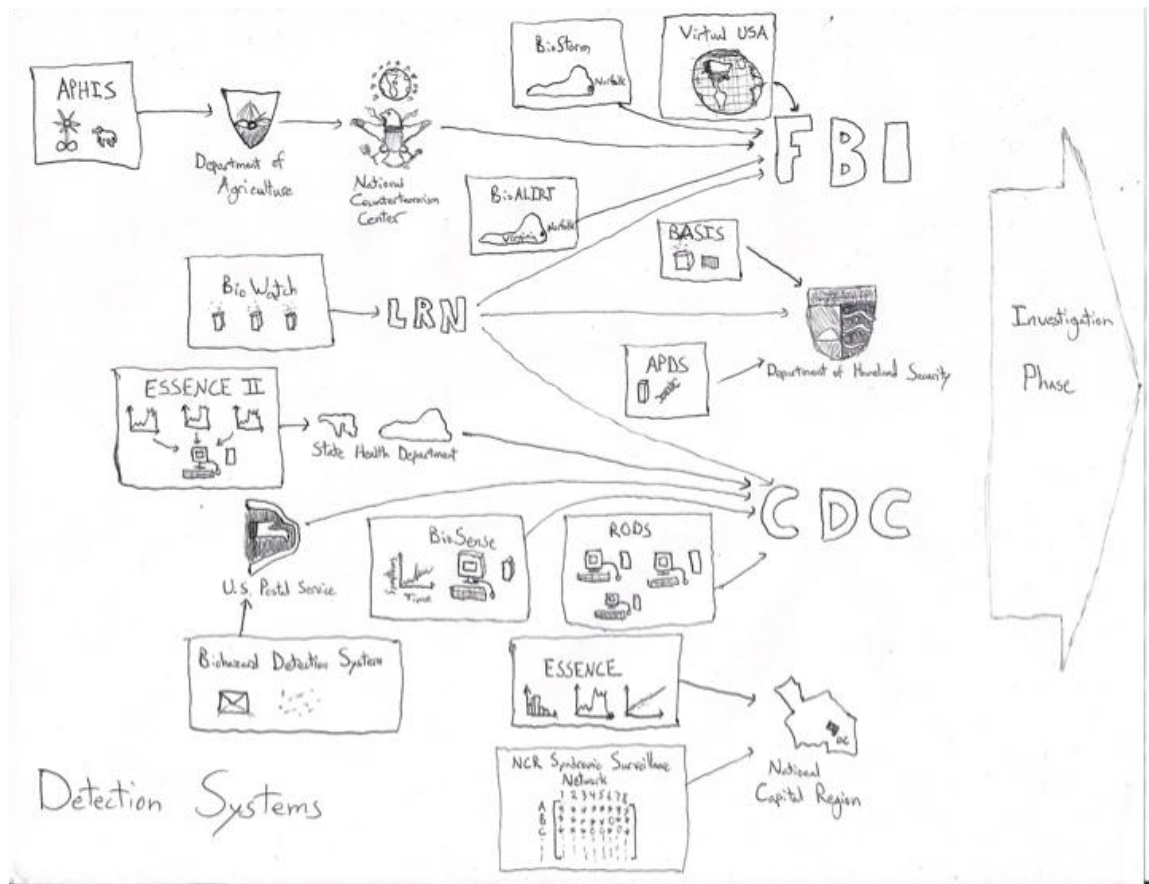 APHIS
Department of
Agriculture
National
Counterterrorism
Center
BioStorm
Norfolk
Virtual USA
FBI
BioALIRT
Norfolk
Virginia
BASIS
BioWatch
LRN
APDS
Department of Homeland Security
Investigation
Phase
ESSENCE II
State Health Department
CDC
U.S. Postal Service
BioSense
Symptoms
Time
RODS
Biohazard Detection System
ESSENCE
DC
National
Capital Region
NCR Syndromic Surveillance
Network
1 2 3 4 5 6 7 8
A
B
C
Detection Systems